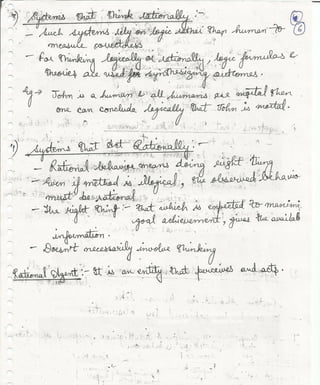 Systems that think rationally :-
- Such systems rely on logic rather than human to
measure correctness.
- For thinking logically or rationally, logic formulas &
theories are used for synthesizing outcomes.
Eg → John is a human & all humans are mortal then
one can conclude logically that John is mortal.
Systems that Act Rationally :-
- Rational behavior means doing right thing
- Even if method is illogical, the observed behavio
must be rational
- The right thing - that which is expected to maximi
goal achievement, given the availab
information.
- Doesn't necessarily involve thinking
Rational Agent :- It is an entity that perceives and acts.
6